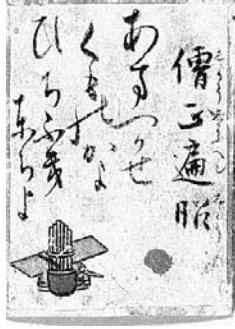 僧正遍昭
あまつかせ
くものかよ
ひちふき
とちよ